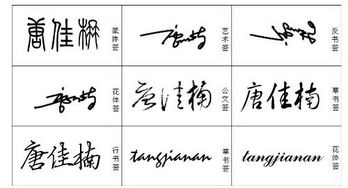 唐佳楠 篆体签
唐佳楠 艺术签
唐佳楠 反书签
唐佳楠 花体签
唐佳楠 公文签
唐佳楠 草书签
唐佳楠 行书签
tangjianan 草书签
tangjianan 花体签